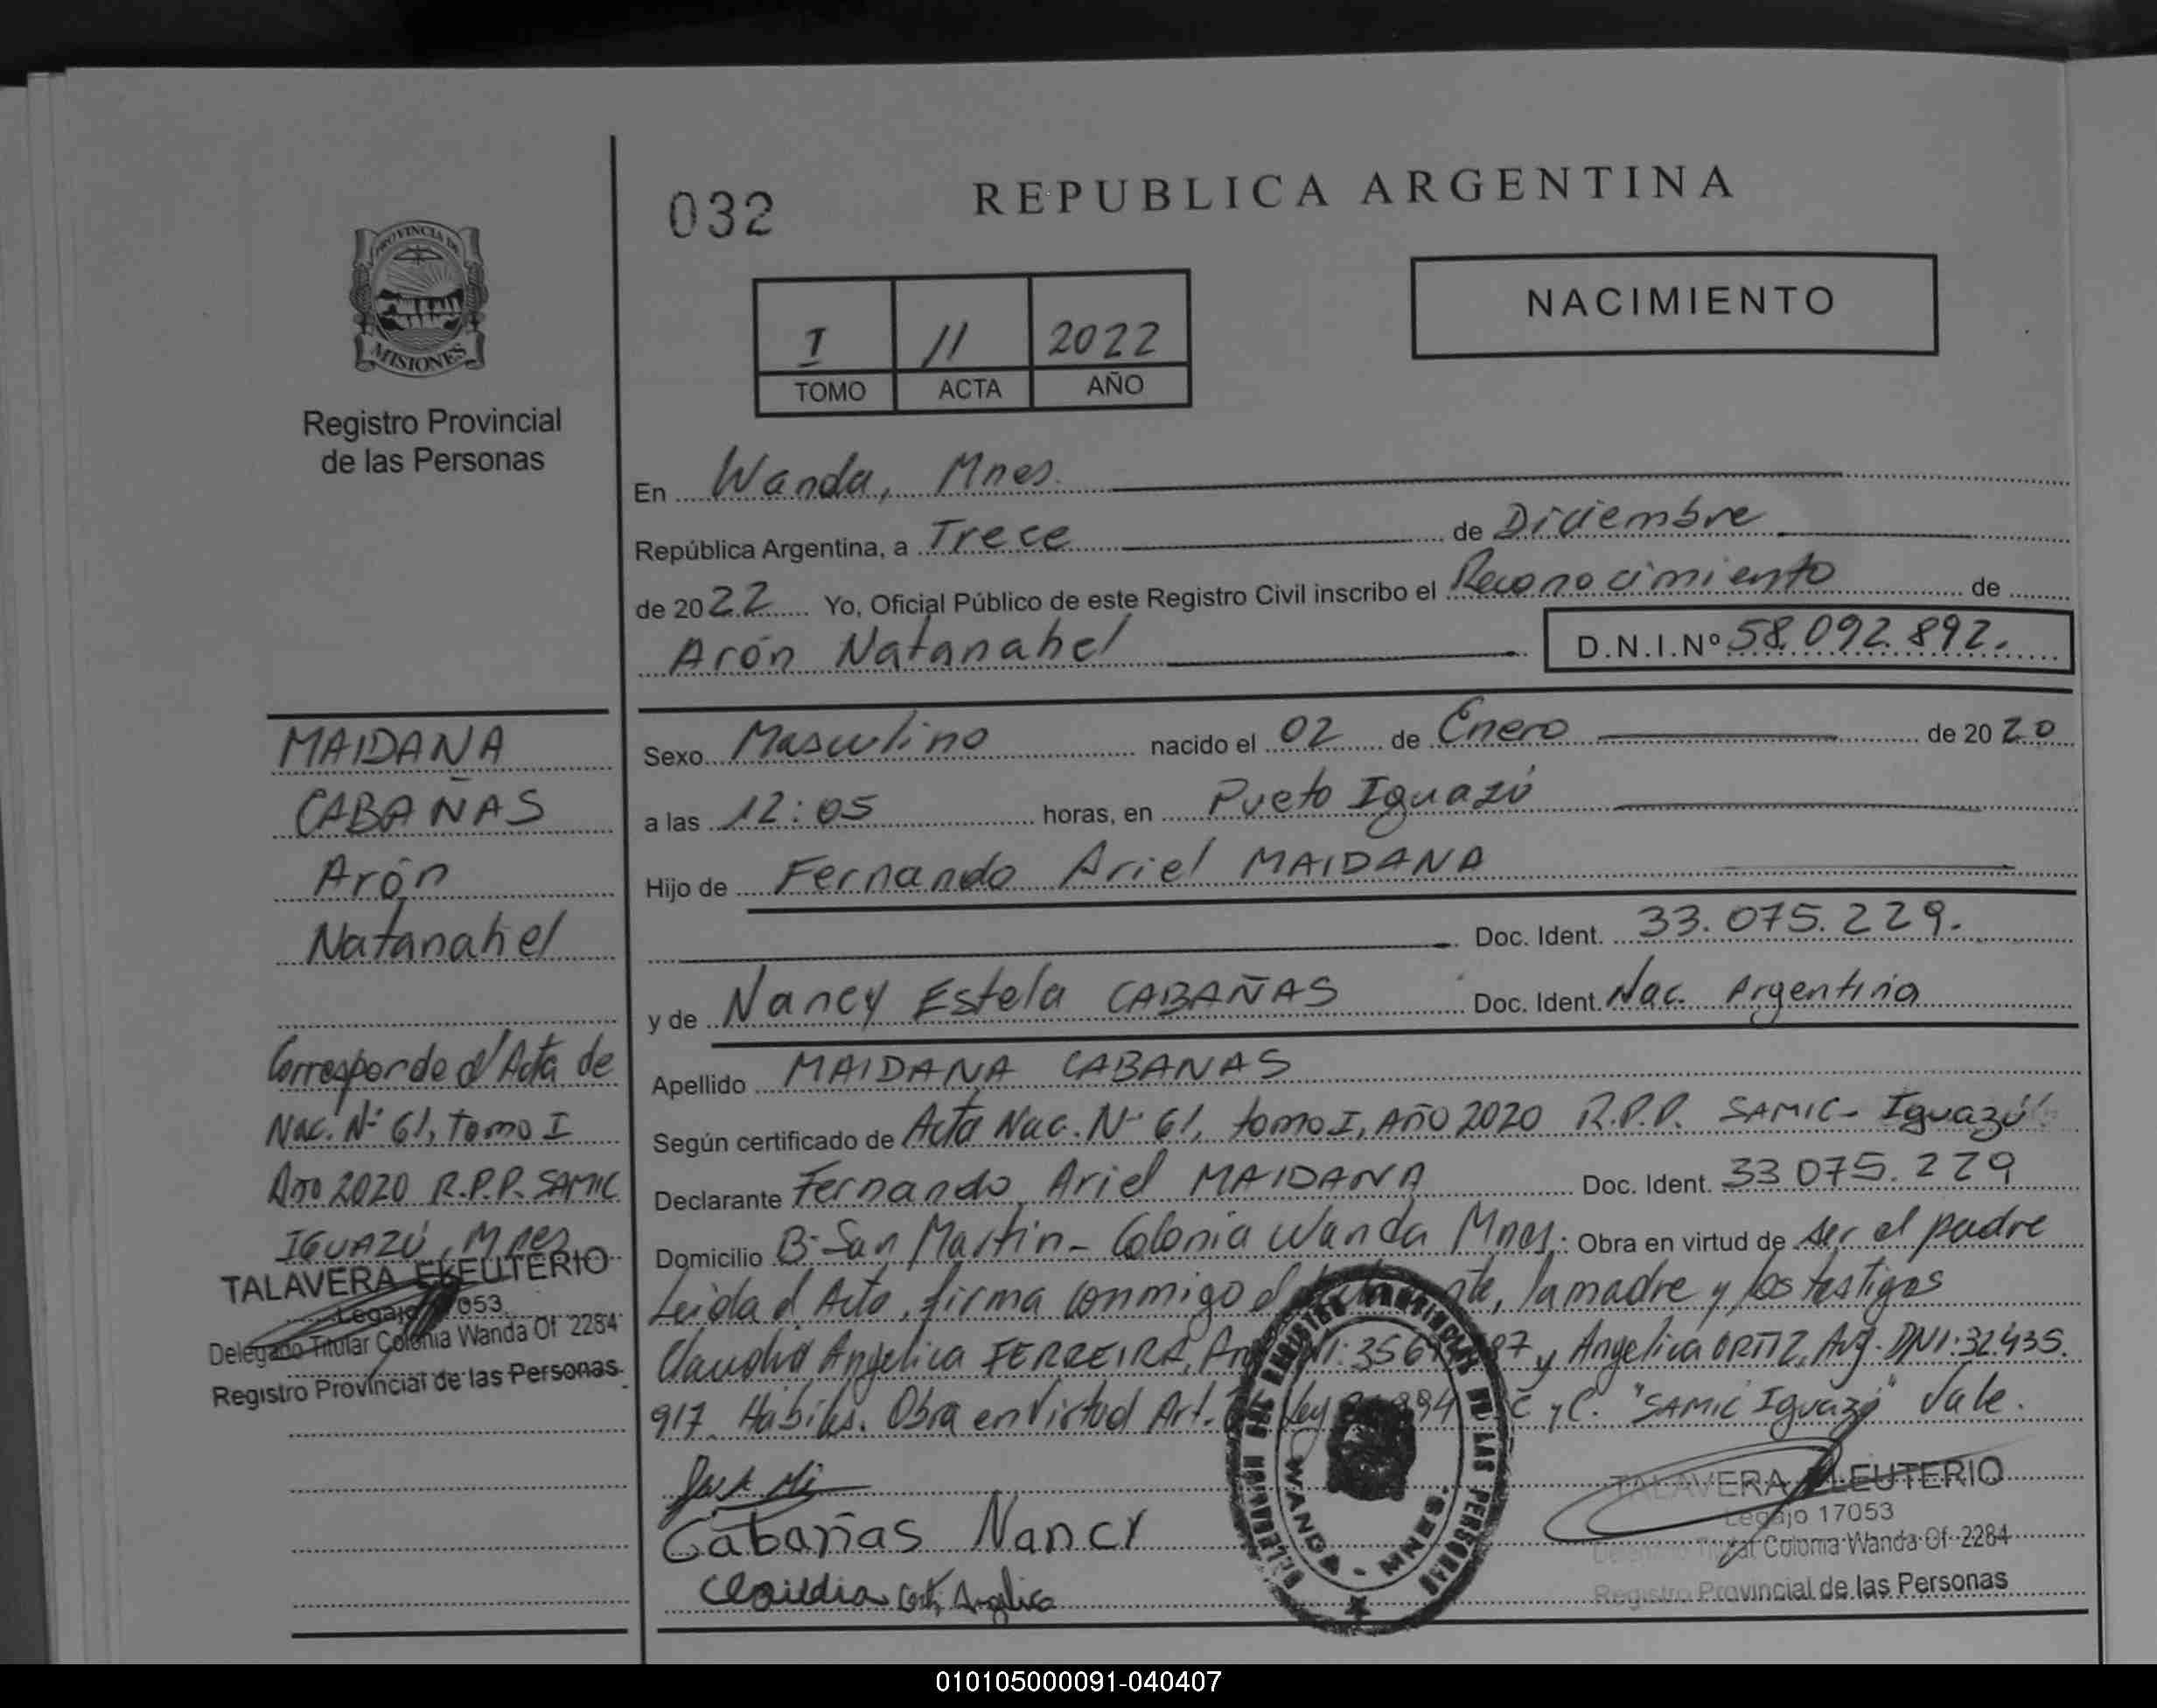 PROVINCIA DE
MISIONES
Registro Provincial
de las Personas
MAIDANA
CABAÑAS
Arón
Natanahel
Corresponde a/ Acta de
Nac. Nº 61, Tomo I
Año 2020 R.P.P. SAMIC
IGUAZÚ, Mnes
TALAVERA ELEUTERIO
Legajo 17053
Delegado Titular Colonia Wanda Of 2284
Registro Provincial de las Personas
032
REPUBLICA ARGENTINA
NACIMIENTO
I 11 2022
TOMO ACTA AÑO
En Wanda, Mnes.
República Argentina, a Trece de Diciembre
de 2022 Yo, Oficial Público de este Registro Civil inscribo el Reconocimiento de
Arón Natanahel D.N.I.Nº 58.092.892.
Sexo Masculino nacido el 02 de Enero de 2020
a las 12:05 horas, en Pueto Iguazú
Hijo de Fernando Ariel MAIDANA
Doc. Ident. 33.075.229.
y de Nancy Estela CABAÑAS Doc. Ident. Nac. Argentina
Apellido MAIDANA CABANAS
Según certificado de Acta Nac. Nº 61, tomo I, Año 2020 R.P.P. SAMIC- Iguazú
Declarante Fernando Ariel MAIDANA Doc. Ident. 33 075. 229
Domicilio Bº San Martin - Colonia Wanda Mnes. Obra en virtud de ser el padre
Leida el Acta, firma conmigo el, la madre y los testigos
Claudia Angelica FERREIRA, y Angelica ORTIZ, Arg. DNI: 32.435.
917 Habiles. Obra en Virtud Art. Ley C y C. "SAMIC Iguazú" Vale.
Cabañas Nancy
Claudia
WANDA - MNES.
DE LAS PERSONAS
TALAVERA ELEUTERIO
Legajo 17053
Delegado Titular Colonia Wanda Of 2284
Registro Provincial de las Personas
010105000091-040407